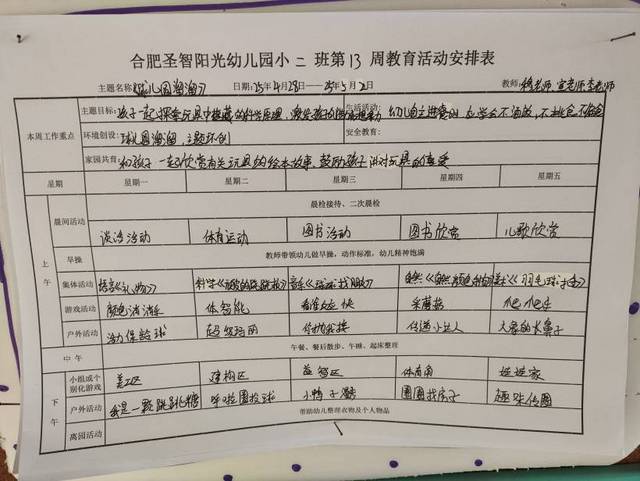 合肥圣智阳光幼儿园小二班第13周教育活动安排表
主题名称《球儿圆溜溜》 日期:25年4月28日——25年5月2日 教师:
本周工作重点
主题目标:孩子一起探索玩具中 的科学原理,激发孩子的 生活活动: 幼儿自主进餐 不挑食不
环境创设:球儿圆溜溜,主题环创 安全教育:
家园共育:和孩子一起欣赏有关玩具的绘本故事,鼓励孩子 对玩具的喜爱
星期 星期一 星期二 星期三 星期四 星期五
上午
晨检接待、二次晨检
晨间活动 谈话活动 体育运动 图书活动 图书欣赏 儿歌欣赏
早操 教师带领幼儿做早操,动作标准,幼儿精神饱满
集体活动 语言《礼物》 科学 音乐 找朋友》
游戏活动 颜色消消乐 体智能 看谁反应快 采蘑菇
户外活动 活力保龄球 你抛我接 传递小达人 大象的长鼻子
中午 午餐、餐后散步、午睡、起床整理
下午
小组或个别化游戏 美工区 建构区 益智区 体育角 娃娃家
户外活动 我是一颗跳跳糖 呼啦圈投球 小鸭子 圈圈找房子
离园活动 带助幼儿整理衣物及个人物品